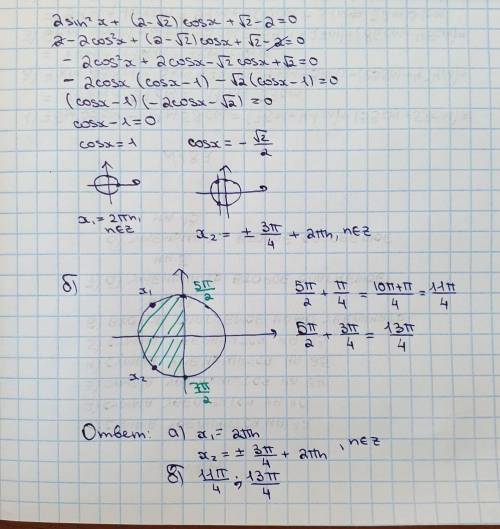 2sin²x + (2-√2)cosx + √2-2=0
2-2cos²x + (2-√2)cosx + √2-2=0
-2cos²x + 2cosx-√2cosx+√2=0
-2cosx (cosx-1) -√2(cosx-1)=0
(cosx-1)(-2cosx-√2)=0
cosx-1=0
cosx=1 cosx= -√2/2
x₁=2πn, n∈Z
x₂= ± 3π/4 + 2πn, n∈Z
б)
x₁ 5π/2
x₂ 7π/2
5π/2 + π/4 = 10π+π/4 = 11π/4
5π/2 + 3π/4 = 13π/4
Ответ: а) x₁= 2πn
x₂= ± 3π/4 + 2πn , n∈Z
б) 11π/4 ; 13π/4